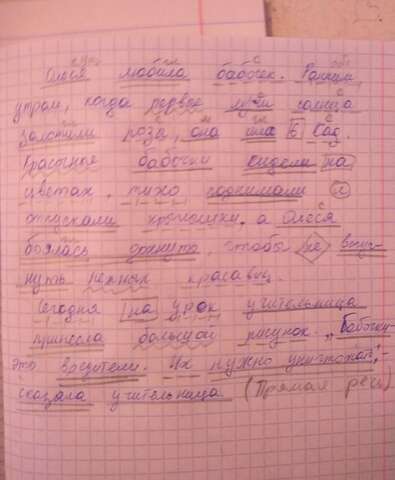 Олеся любила бабочек. Ранним
утром, когда первые лучи солнца
золотили розы, она шла в сад.
Красивые бабочки сидели на
цветах, тихо поднимали и
опускали крылышки, а Олеся
боялась дохнуть, чтобы не вспуг-
нуть нежных красавиц.
Сегодня на урок учительница
принесла большой рисунок. „Бабочки-
это вредители. Их нужно уничтожать",-
сказала учительница (Прямая речь)